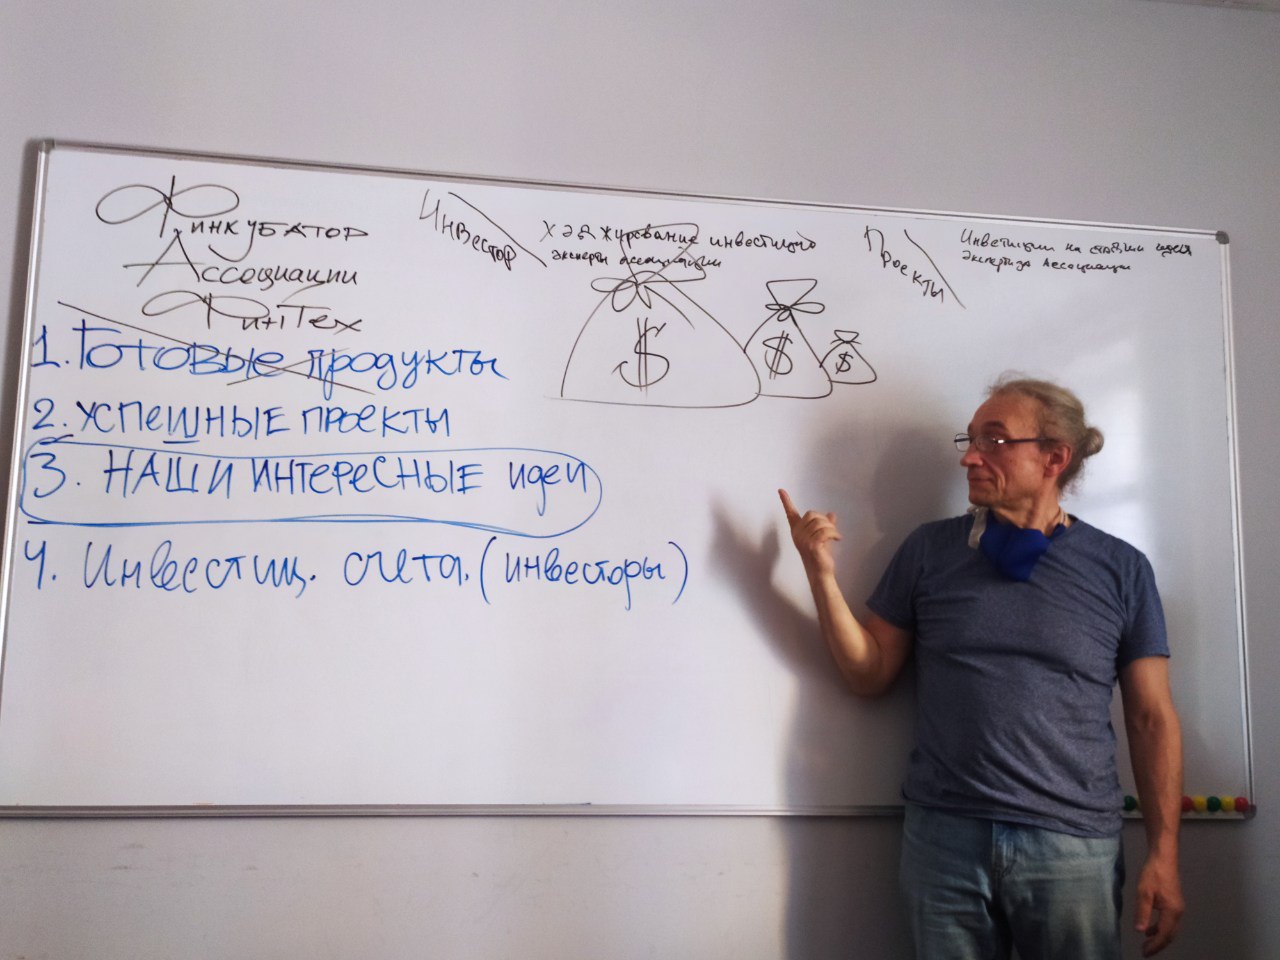 Финкубатор
Ассоциации
ФинТех
Инвестор
Хэджирование инвестиций
эксперты ассоциации
Проекты
Инвестиции на стадии идея
Экспертиза Ассоциации
$ $ $
1. Готовые продукты
2. УСПЕШНЫЕ ПРОЕКТЫ
3. НАШИ ИНТЕРЕСНЫЕ идеи
4. Инвестиц. счета. (инвесторы)